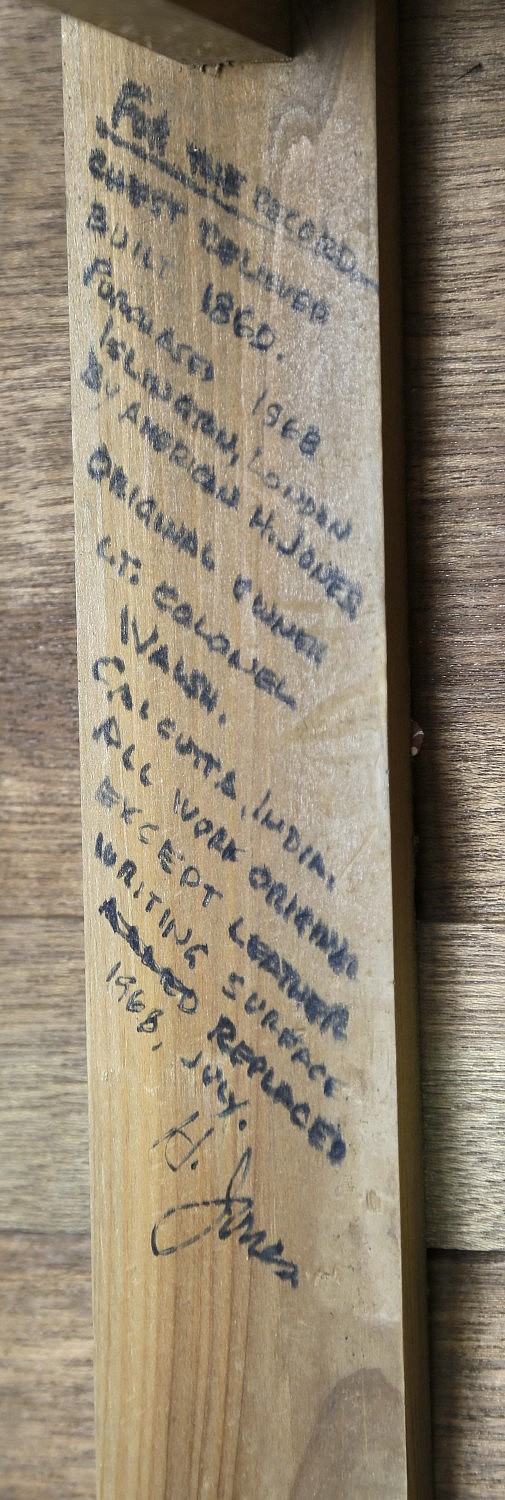 FOR THE RECORD
CHEST BELIEVED
BUILT 1860.
PURCHASED 1968
ISLINGTON, LONDON
BY AMERICAN H. JONES
ORIGINAL OWNER
LT. COLONEL
WALSH.
CALCUTTA, INDIA.
ALL WORK ORIGINAL
EXCEPT LEATHER
WRITING SURFACE
REPLACED
1968, JULY.
H. Jones